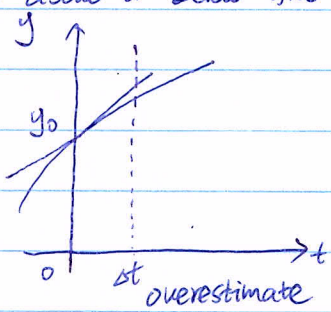 y
y₀
t
0
Δt
overestimate